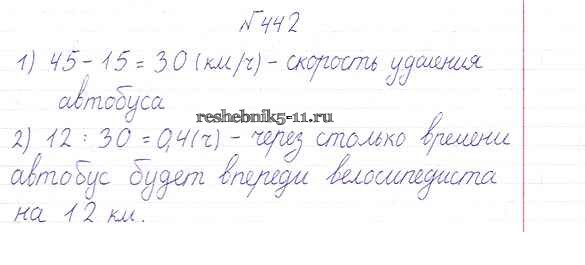 № 442
1) 45 - 15 = 30 (км/ч) - скорость удаления
автобуса
reshebnik5-11.ru
2) 12 : 30 = 0,4 (ч) - через столько времени
автобус будет впереди велосипедиста
на 12 км.